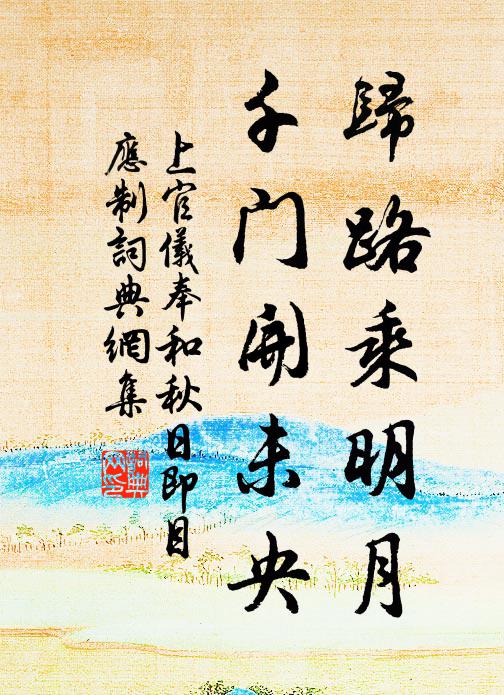 歸路乘明月
千門開未央
上官儀奉和秋日即目
應制詞典網集